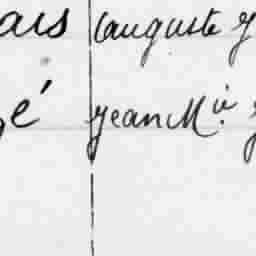 ais Auguste
é Jean M.ie